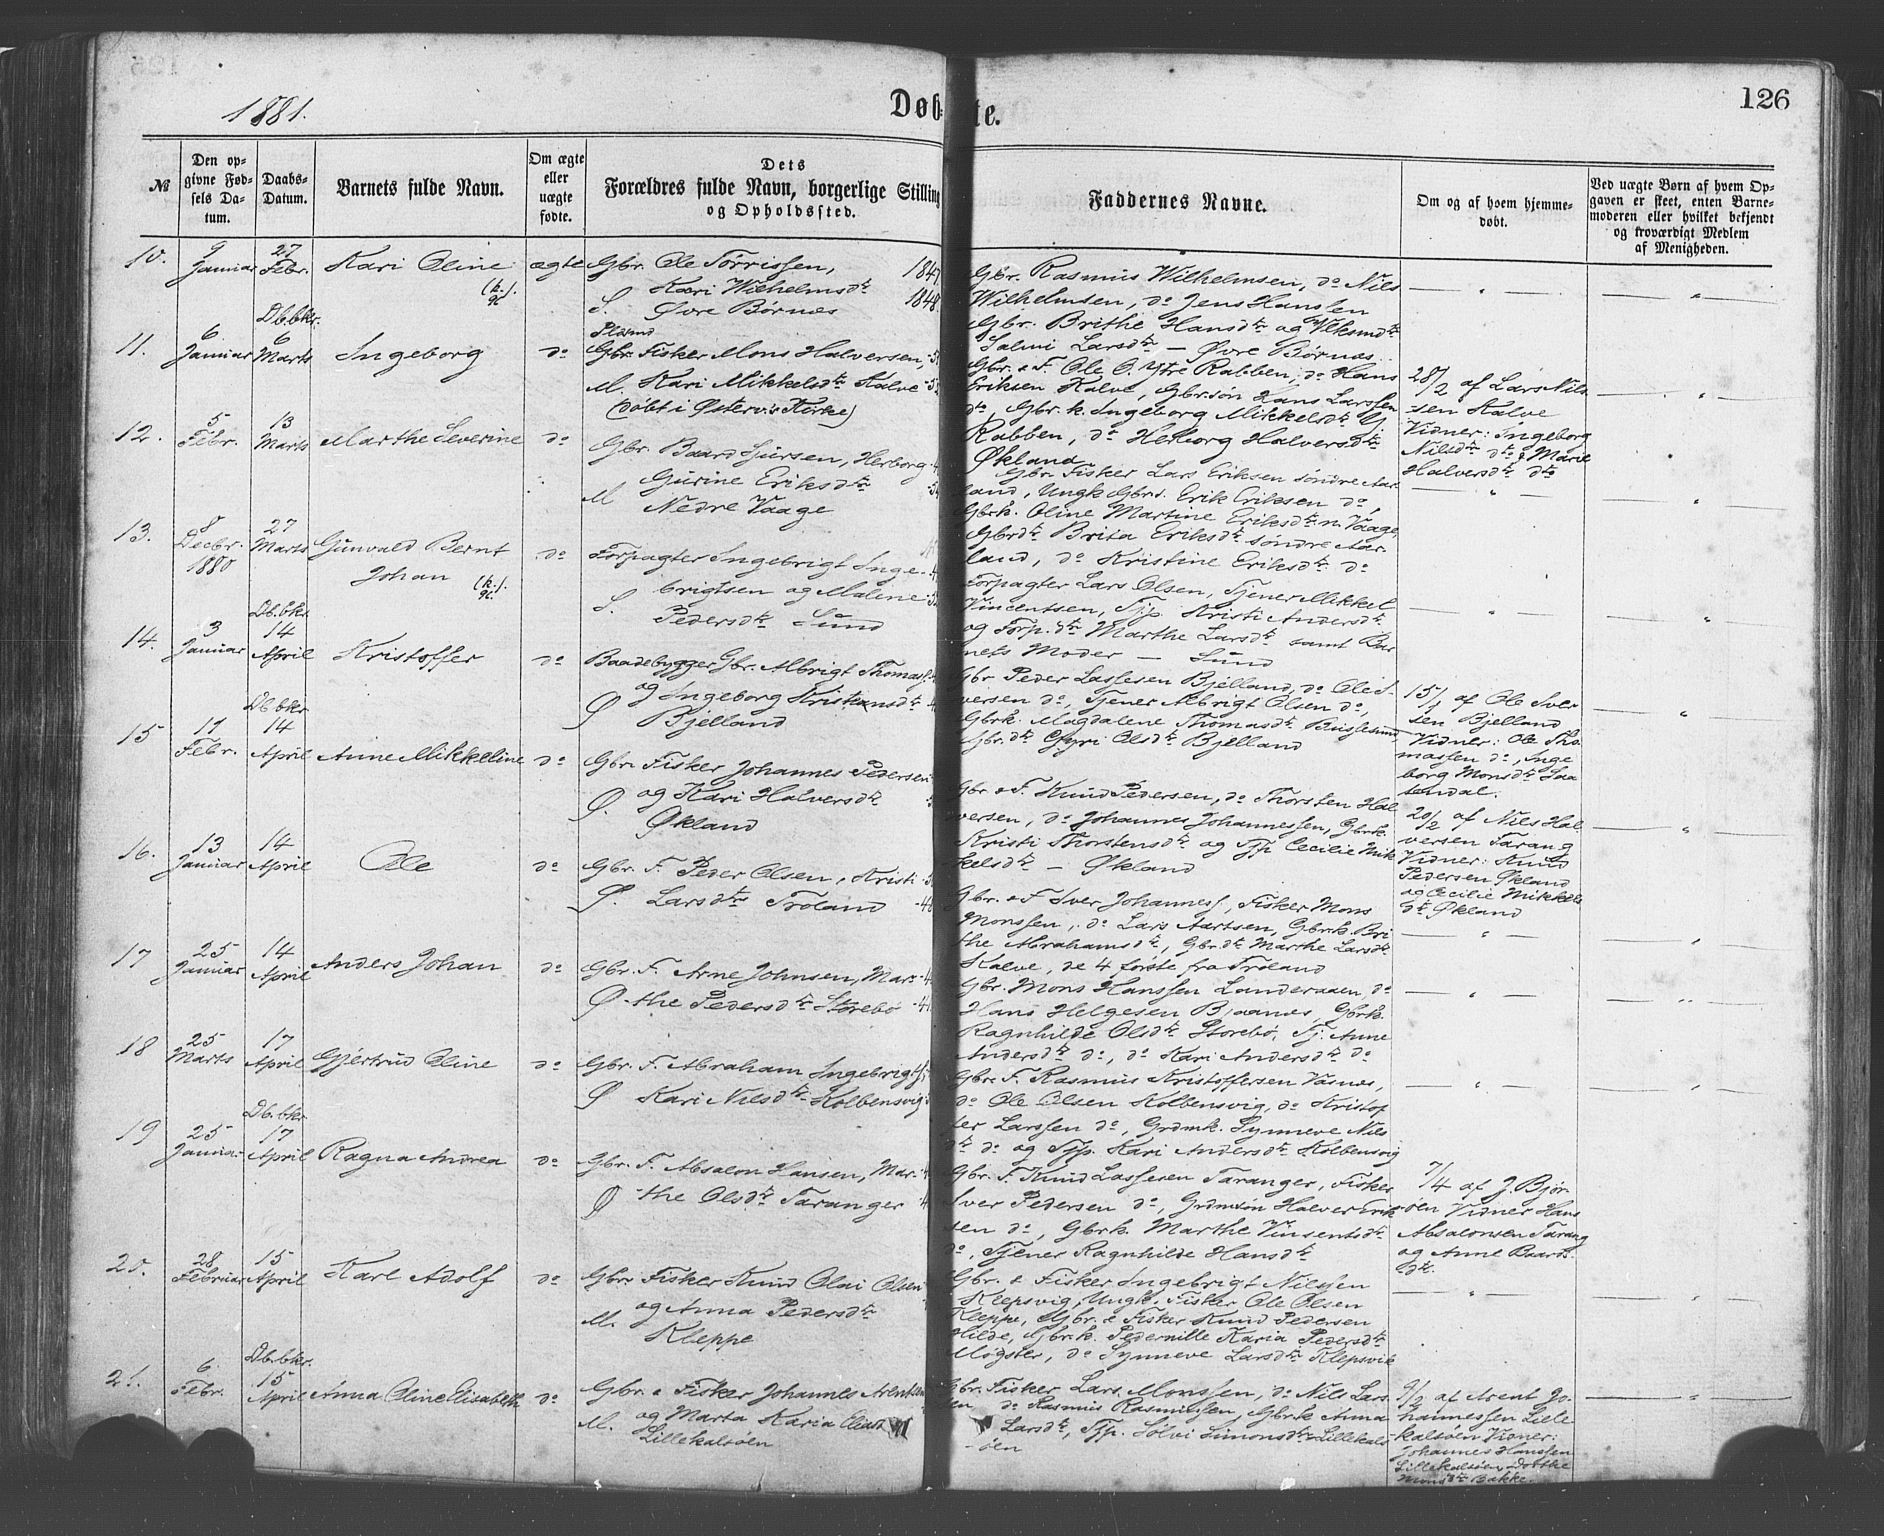 1881.
Døb-
te.
126
№
Den op-
givne Fød-
sels Da-
tum.
Daabs-
Datum.
Barnets fulde Navn.
Om ægte
eller
uægte
fødte.
Dets
Forældres fulde Navn, borgerlige Stilling
og Opholdssted.
Faddernes Navne.
Om og af hvem hjemme-
døbt.
Ved uægte Børn af hvem Op-
gaven er skeet, enten Barne-
moderen eller hvilket bekjendt
og troværdigt Medlem
af Menigheden.
10.
9
Januar
27
Febr.
Kari Oline
(k.)
ægte
Gbr. Ole Tørrissen, 1847
Kari Wilhelmsdtr 1848
S. Øvre Børnes
Gbr. Rasmus Wilhelmsen, do Nils
Wilhelmsen, do Jens Hansen
Gbr. Brithe Hansdtr og
Salmi Larsdtr — Øvre Børnes
11.
6
Januar
Db.bkr.
6
Marts
Ingeborg
do
Gbr. Fisker Mons Halversen,
M. Kari Mikkelsdtr Kalve
(døbt i Østerv's Kirke)
Gbr. & F. Ole O. Ytre Rabben, do Hans
Eriksen Kalve, Gbr.søn Hans Larssen
do, Gbr.k. Ingeborg Mikkelsdtr Y.
Rabben, do Herborg Halversdtr
Økland
28/2 af Lars Nils-
sen Kalve
Vidner: Ingeborg
Nilsdtr do & Marie
Halversdtr do
12.
5
Febr.
13
Marts
Marthe Severine
do
Gbr. Baard Sjursen, Herborg
Gurine Eriksdtr
M Nedre Vaage
Gbr. Fisker Lars Eriksen søndre Aar-
land, Ungk. Gbrs. Erik Eriksen do,
Gbrk. Oline Martine Eriksdtr n. Vaage,
Gbrdtr Brita Eriksdtr søndre Aar-
land, do Kristine Eriksdtr do
13.
8
Decbr.
1880
27
Marts
Gunvald Bernt
Johan (k.)
do
Forpagter Ingebrigt Inge-
brigtsen og Malene
S. Pedersdtr Sund
Forpagter Lars Olsen, Tjener Mikkel
Vincentsen, Tjp. Kristi Andersdtr
og Forp.dtr Marthe Larsdtr samt Bar-
nets Moder — Sund
14.
3
Januar
Db.bkr.
14
April
Kristoffer
do
Baadebygger Gbr. Albrigt Thomass.
og Ingeborg Kristiansdtr
Ø Bjelland
Gbr Peder Lassesen Bjelland, do Ole I-
versen do, Tjener Albrigt Olsen do,
Gbrk. Magdalene Thomasdtr Buskesund,
Gbr.dtr Gyri Olsdtr Bjelland
15/1 af Ole Iver-
sen Bjelland
Vidner: Ole Tho-
massen do, Inge
borg Monsdtr Saa-
tendal.
15
19
Febr.
Db.bkr
14
April
Anne Mikkeline
do
Gbr. Fisker Johannes Pedersen
og Kari Halversdtr
Ø. Økland
Gbr & F. Knud Pedersen, do Thorsten Hal
versen, do Johannes Johannessen, Gbrk.
Kristi Thorstensdtr og Tjp Cecilie Mik
kelsdtr — Økland
20/2 af Nils Hal
versen Tarang
Vidner: Knud
Pedersen Økland
og Cecilie Mikkels
dtr Økland
16.
13
Januar
14
April
Ole
do
Gbr. F. Peder Olsen, Kristi
Ø. Larsdtr Troland -48
Gbr. & F Iver Johanness, Fisker Mons
Monssen, do Lars Aartsen, Gbrk. Bri
the Abrahamsdtr, Gbr.dtr Marthe Larsdtr
Kalve, de 4 første fra Troland
17
25
Januar
14
April
Anders Johan
do
Gbr. F. Arne Johnsen, Mar-
Ø -the Pedersdtr Storebø
Gbr. Mons Hanssen Landeraaen, do
Hans Helgesen Bjaanes, Gbrk.
Ragnhilde Olsdtr Storebø, Tj. Anne
Andersdtr do, do Kari Andersdtr do
18
25
Marts
17
April
Gjertrud Oline
do
Gbr. F. Abraham Ingebrigts.
Ø Kari Nilsdtr Kolbensvig
Gbr. F. Rasmus Kristoffersen Vasnes,
do Ole Olsen Kolbensvig, do Kristof
fer Larssen do, Grdmk. Synneve Nils
dtr do og Tjp. Kari Andersdtr Kolbensvig
19
25
Januar
Db.bkr
17
April
Ragna Andrea
do
Gbr. F. Absalon Hansen, Mar-
Ø -the Olsdtr Taranger
Gbr. F. Knud Lassesen Taranger, Fisker
Iver Pedersen do, Grdmsøn Halver Erik
sen do, Gbrk. Marthe Vinsentsdtr
do, Tjener Ragnhilde Hansdtr
7/4 af J. Bjør-
øen Vidner Hans
Absalonsen Tarang
og Anne Baards
dtr.
20.
28
Februar
15
April
Karl Adolf
do
Gbr. Fisker Knud Olai Olsen
og Anna Pedersdtr
M. Kleppe
Gbr. & Fisker Ingebrigt Nilssen
Klepsvig, Ungk. Fisker Ole Olsen
Kleppe, Gbr. & Fisker Knud Pedersen
Hilde, Gbr.k. Pedernille Karia Pedersdtr
Møgster, do Synneve Larsdtr Klepsvik
21.
6
Febr.
Db.bkr.
15
April
Anna Oline Elisabeth
do
Gbr. & Fisker Johannes Arentsen
og Marta Karia
M. Lillekalsøen
Gbr. Fisker Lars Monssen, do Nils Lars-
sen do Rasmus Rasmussen, Gbrk Anna
Larsdtr, Tjp. Sølvi Simonsdtr Lillekals
-øen
9/2 af Arent Jo-
hannessen Lille
kalsøen Vidner:
Johannes Hanssen
Lillekalsøen, Dorthe
Monsdtr Bakke.